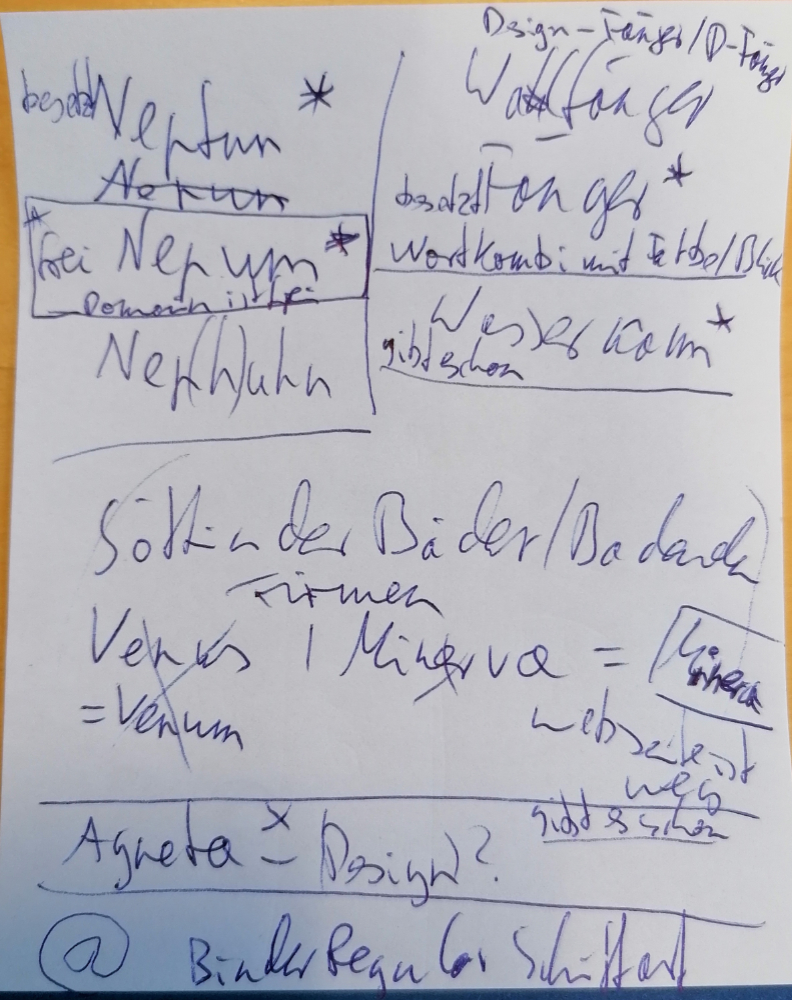 besetzt Neptun *
Nepun
frei Nepum *
Domain ist frei
Nep(h)uhn
Design-Fänger/D-Fänger
Wattfänger
besetzt Fänger *
Wortkombi mit Farbe/Blick
Wasserkamm *
gibt schon
Göttin der Bäder/Badende
Firmen
Venus | Minerva = Minera
= Venum
webseite ist
weg
gibt es schon
Agneta x – (Design)?
@ Binder Regular Schriftart